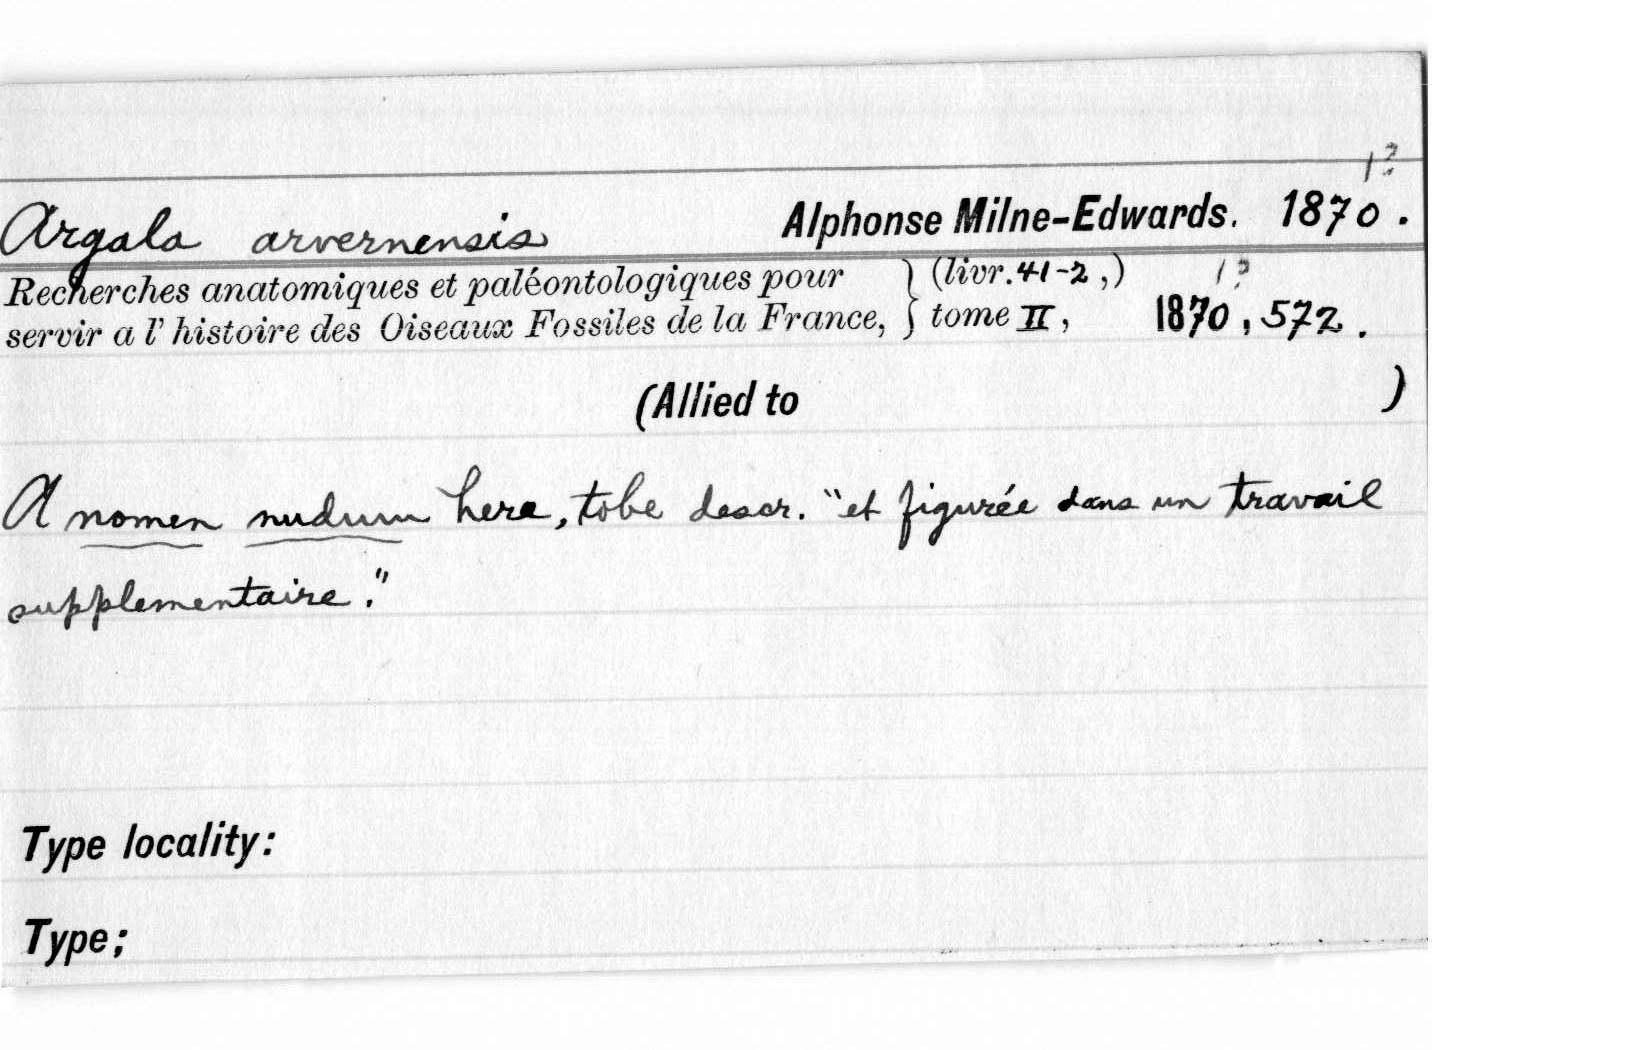 1?
Argala arvernensis Alphonse Milne-Edwards. 1870.
Recherches anatomiques et paléontologiques pour } (livr. 41-2,) 1?
servir a l' histoire des Oiseaux Fossiles de la France, } tome II, 1870, 572.
(Allied to )
A nomen nudum here, to be descr. "et figurée dans un travail
supplementaire."
Type locality:
Type;